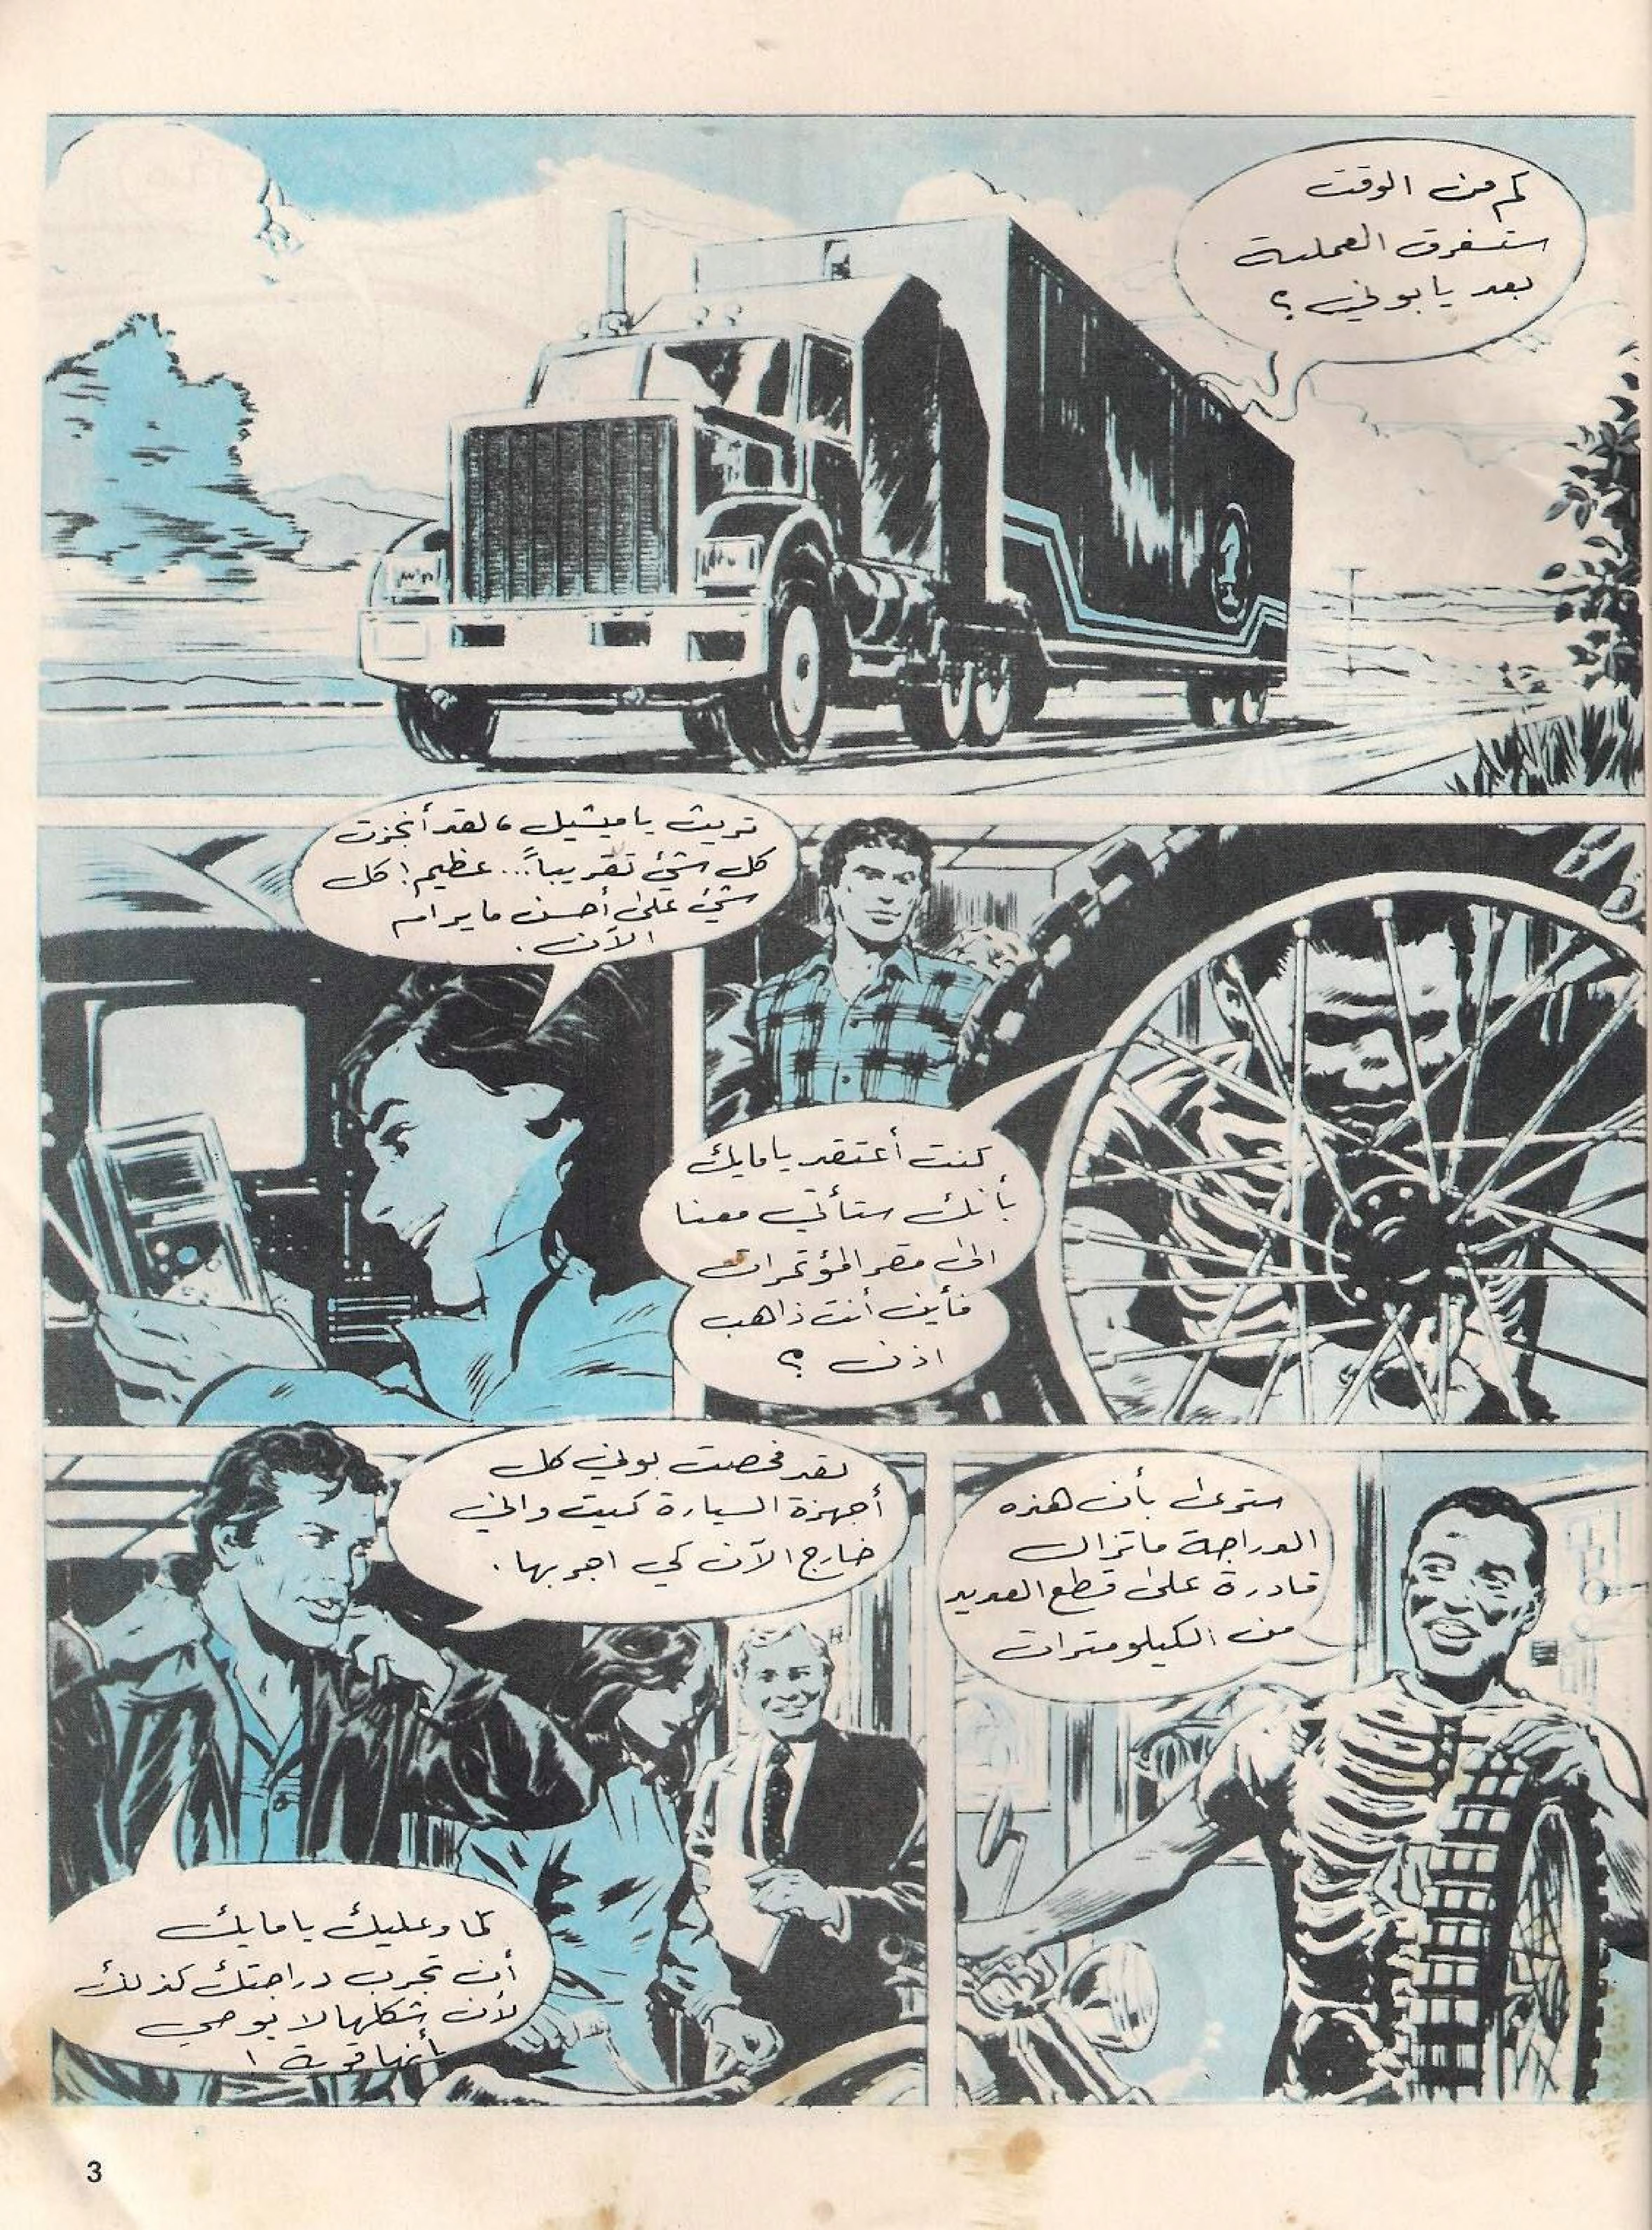 كم من الوقت
ستستغرق العملية
بعد يا بوني؟
كنت أعتقد يا مايك
بأنك ستأتي معنا
الى مقر المؤتمرات
فأين أنت ذاهب
اذن؟
تريث يا ميشيل، لقد أنجزت
كل شيء تقريباً... عظيم! كل
شيء على أحسن ما يرام
الآن.
سترى بأن هذه
الدراجة ما تزال
قادرة على قطع العديد
من الكيلومترات
لقد فحصت بوني كل
أجهزة السيارة كيت واني
خارج الآن كي اجربها.
كما وعليك يا مايك
أن تجرب دراجتك كذلك
لأن شكلها لا يوحي
بأنها قوية!
3